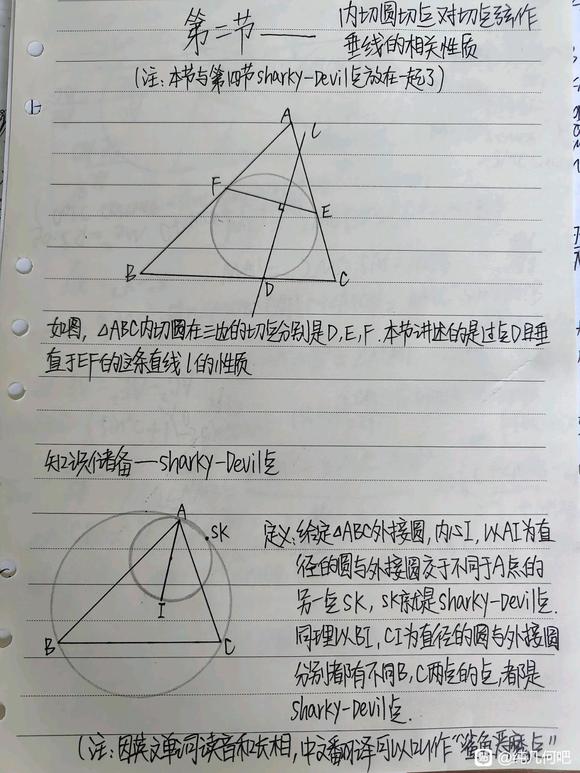 第二节——
内切圆切点对切点弦作
垂线的相关性质
(注:本节与第四节sharky-Devil点放在一起了)
A
l
F
E
B
D
C
如图,△ABC内切圆在三边的切点分别是D,E,F.本节讲述的是过点D且垂
直于EF的这条直线l的性质
知识储备——sharky-Devil点
A
SK
I
B
C
定义:给定△ABC外接圆,内心I,以AI为直
径的圆与外接圆交于不同于A点的
另一点SK,SK就是sharky-Devil点.
同理以BI,CI为直径的圆与外接圆
分别都有不同B,C两点的点,都是
sharky-Devil点.
(注:因英文单词读音和长相,中文翻译可以叫作"鲨鱼恶魔点"
@纯几何吧